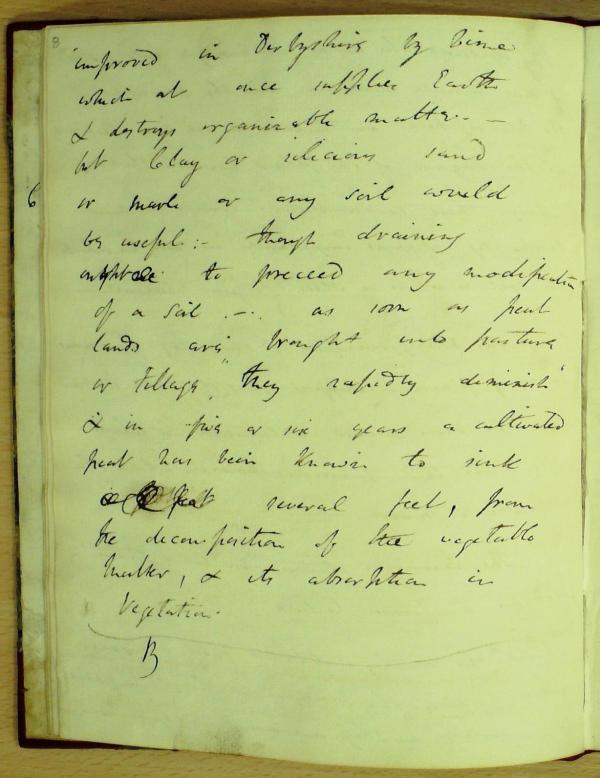 8
improved in Derbyshire by lime
which at once supplies Earth
& destroys organizable matter. —
but Clay or silicious sand
6
or marle or any soil would
be useful :- though draining
ought to preceed any modification
of a soil .-. as soon as peat
lands are "brought into pasture
or tillage, they rapidly diminish"
& in five or six years a cultivated
peat has been known to sink
several feet, from
the decomposition of the vegetable
matter, & its absorption in
Vegetation.
B